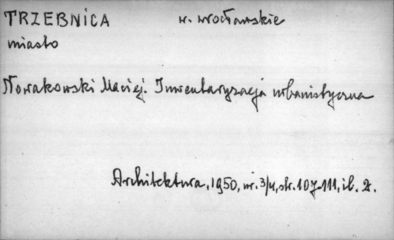 TRZEBNICA w. wrocławskie
miasto
Nowakowski Maciej. Inwentaryzacja urbanistyczna
Architektura, 1950, nr. 3/4, str. 107-111, il. 2.